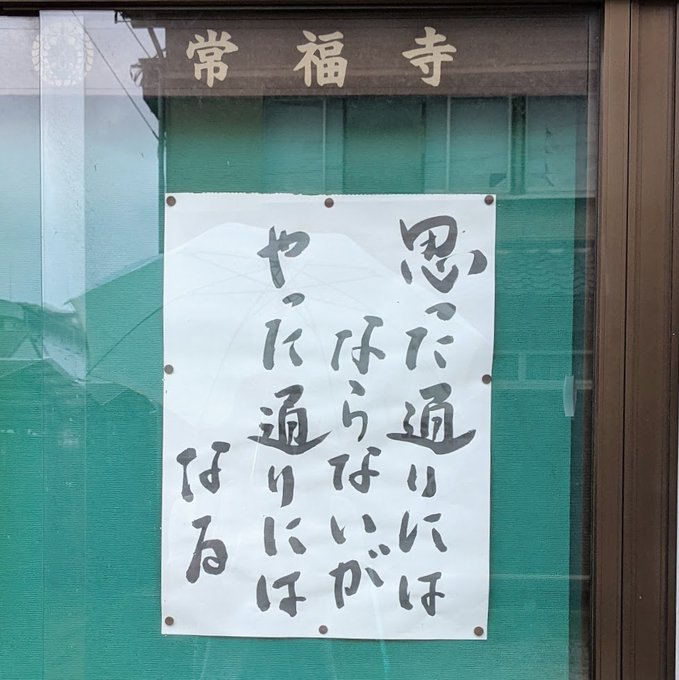 常福寺
思った通りには
ならないが
やった通りには
なる